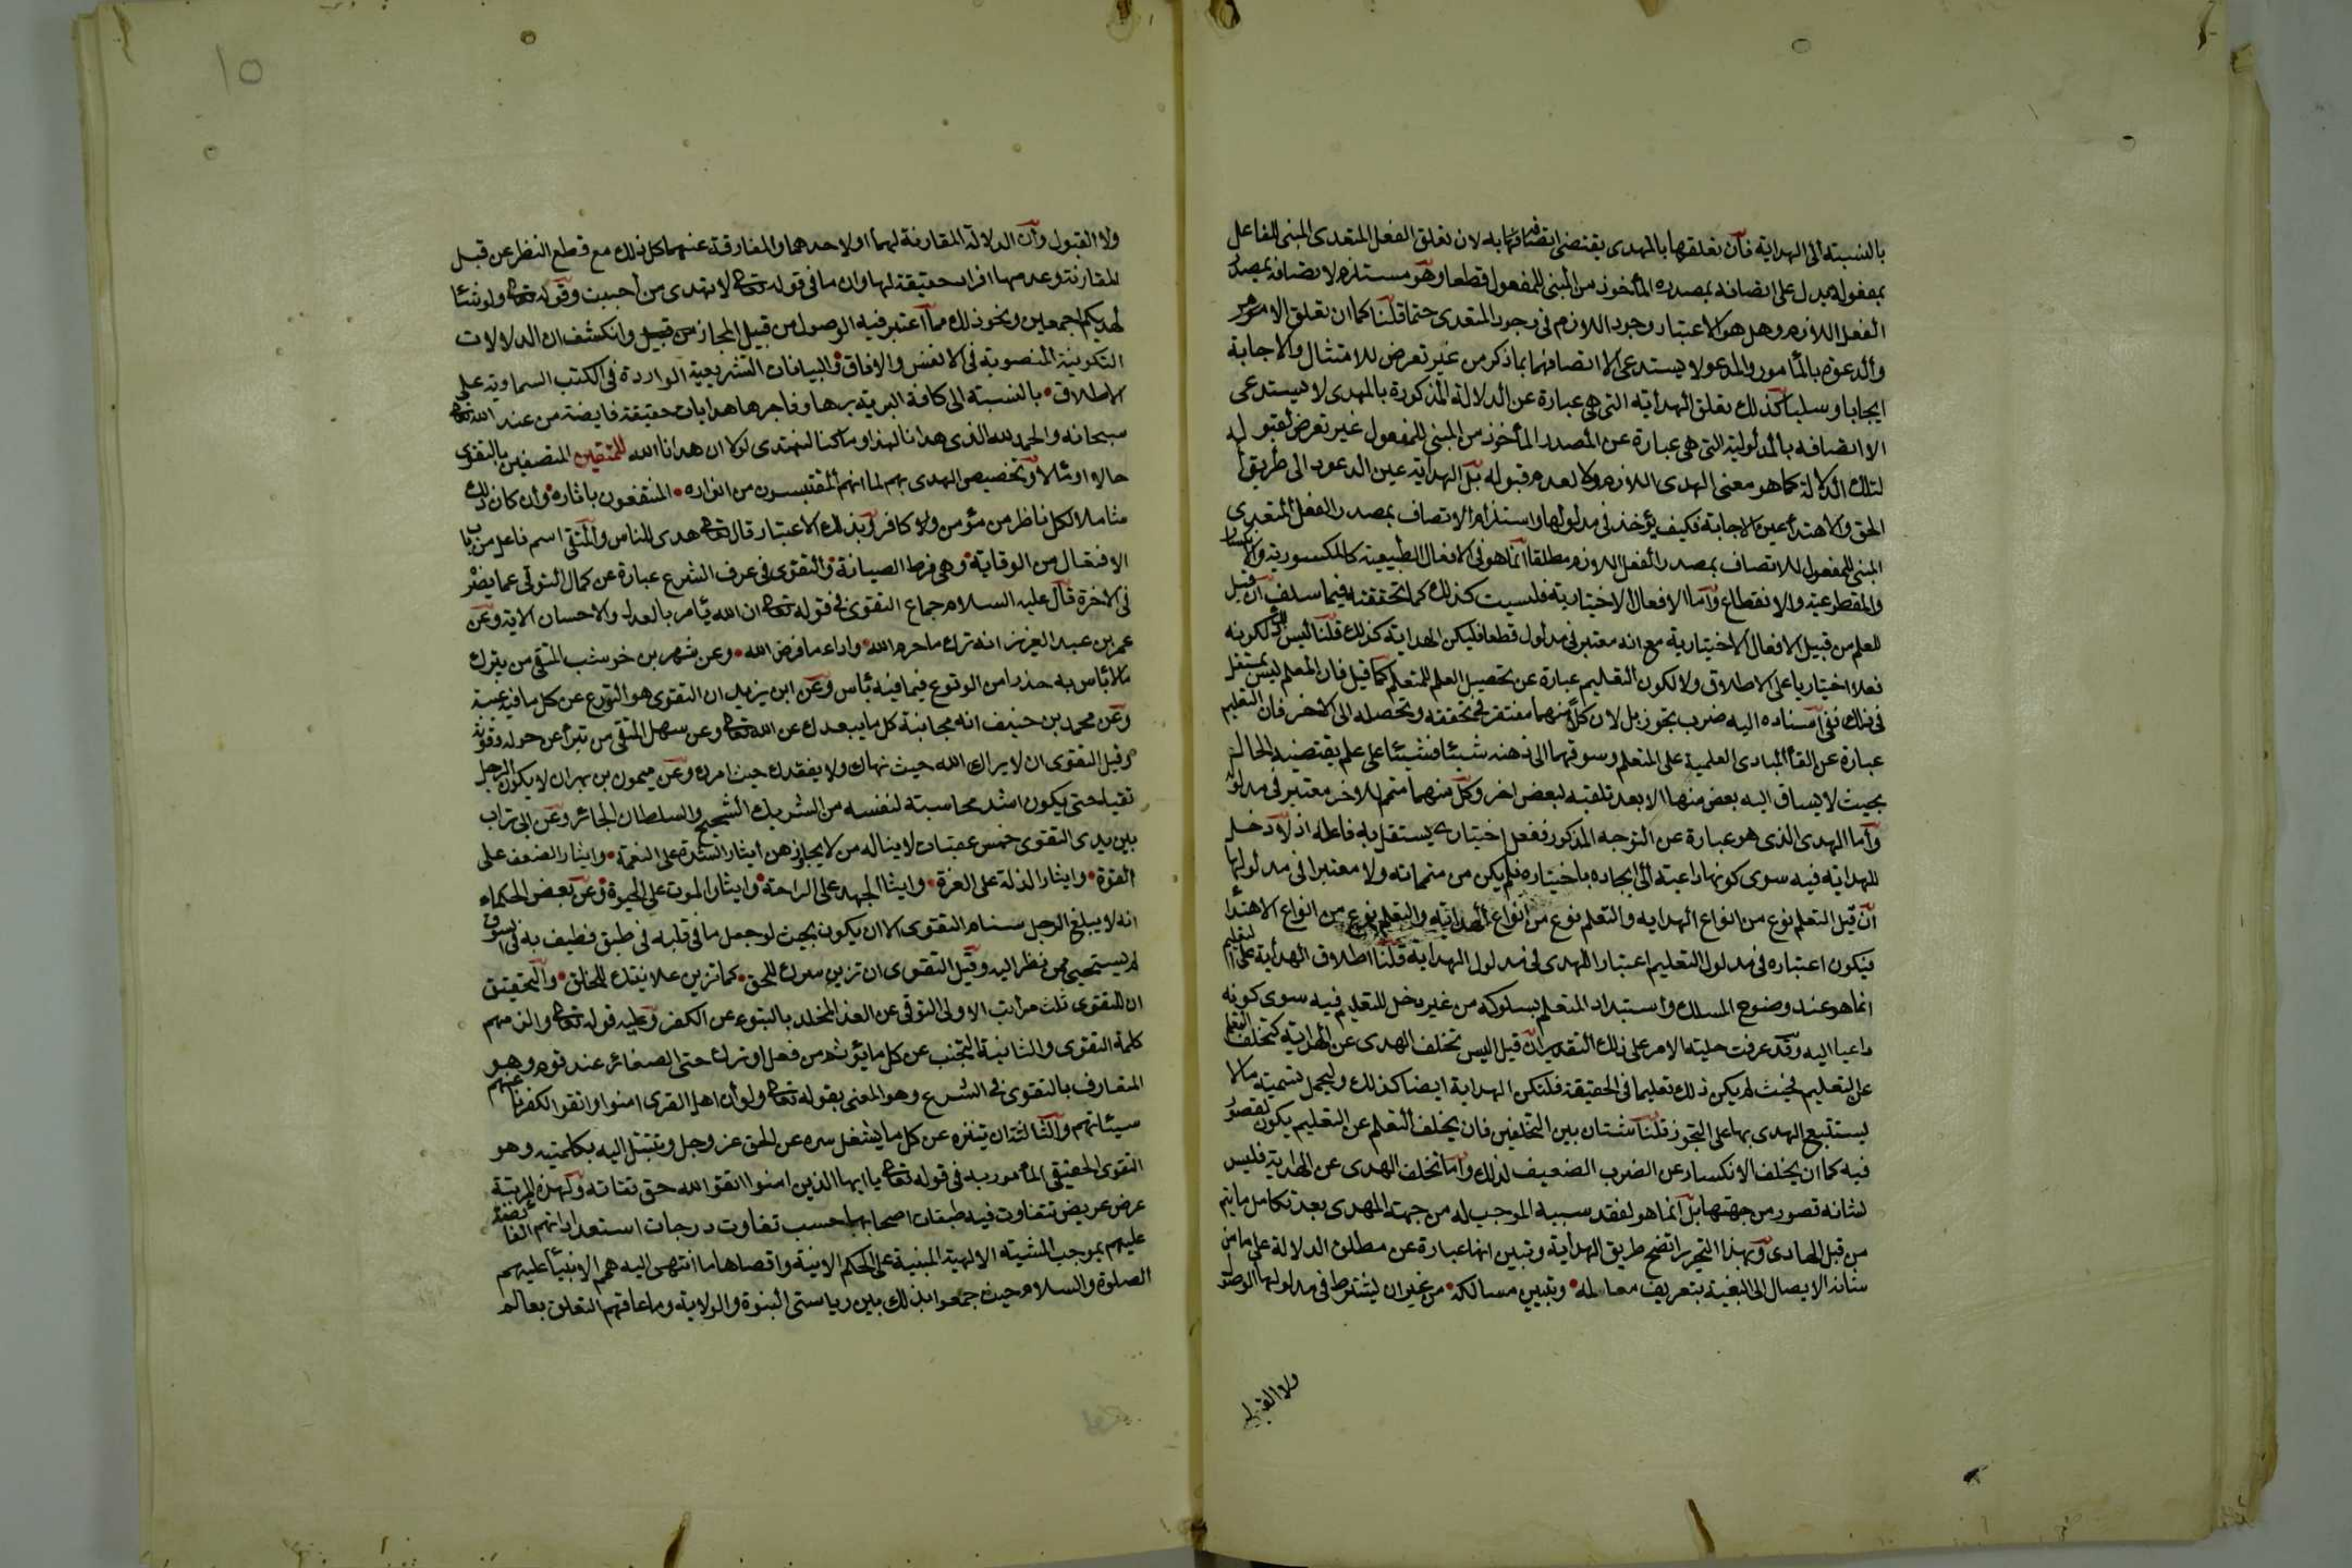 بالنسبة الى الهداية فان تعلقها بالمهدى يقتضى اتصافه به لان تعلق الفعل المتعدى المبنى للفاعل
بمفعوله يدل على اتصافه بمصدره المأخوذ من المبنى للمفعول قطعا وهو مستلزم لاتصافه بمصدر
الفعل اللازم وهل هو الا اعتبار وجود اللازم فى وجود المتعدى حتما قلنا كما ان تعلق الامر
والدعوة بالمأمور والمدعو لا يستدعى الا اتصافهما بما ذكر من غير تعرض للامتثال والاجابة
ايجابا وسلبا كذلك تعلق الهداية التى هى عبارة عن الدلالة المذكورة بالمهدى لا يستدعى
الا اتصافه بالمدلولية التى هى عبارة عن المصدر المأخوذ من المبنى للمفعول غير تعرض لقبوله
لتلك الدلالة كما هو معنى الهدى اللازم ولا لعدم قبوله بل الهداية عين الدعوة الى طريق
الحق والاهتداء عين الاجابة فكيف يؤخذ فى مدلولها واستلزام الاتصاف بمصدر الفعل المتعدى
المبنى للمفعول للاتصاف بمصدر الفعل اللازم مطلقا انما هو فى الافعال الطبيعية كالمكسورية والانكسار
والمقطوعية والانقطاع واما الافعال الاختيارية فليست كذلك كما تحققته فيما سلف ان قيل
للعلم من قبيل الافعال الاختيارية مع انه معتبر فى مدلول قطعا فليكن الهداية كذلك قلنا ليس ذلك لكونه
فعلا اختياريا على الاطلاق ولا لكون التعليم عبارة عن تحصيل العلم للمتعلم كما قيل فان المعلم ليس بمستقل
فى ذلك ففى اسناده اليه ضرب تجوز بل لان كلا منهما مفتقر فى تحققه وتحصله الى الاخر فان التعليم
عبارة عن القاء المبادى العلمية على المتعلم وسوقها الى ذهنه شيئا فشيئا على علم يقتضيه الحال
بحيث لا يساق اليه بعض منها الا بعد تلقيه لبعض اخر وكل منهما متمم للاخر معتبر فى مدلوله
واما الهدى الذى هو عبارة عن التوجه المذكور ففعل اختيارى يستقل به فاعله اذ لا دخل
للهداية فيه سوى كونها داعية الى ايجاده باختياره فلم يكن من متمماته ولا معتبرا فى مدلولها
ان قيل التعلم نوع من انواع الهداية والتعلم نوع من انواع الهداية والتعلم نوع من انواع الاهتداء
فيكون اعتباره فى مدلول التعليم اعتبار الهدى فى مدلول الهداية قلنا اطلاق الهداية على التعليم
انما هو عند وضوح المسلك واستبداد المتعلم بسلوكه من غير دخل للتعليم فيه سوى كونه
داعيا اليه وقد عرفت جلية الامر على ذلك التقدير ان قيل اليس تخلف الهدى عن الهداية كتخلف التعلم
عن التعليم فحيث لم يكن ذلك تعليما فى الحقيقة فلتكن الهداية ايضا كذلك وليحمل تسميته مالا
يستتبع الهدى بها على التجوز قلنا شتان بين التخلفين فان تخلف التعلم عن التعليم يكون لقصور
فيه كما ان تخلف الانكسار عن الضرب الضعيف لذلك واما تخلف الهدى عن الهداية فليس
لشائبة قصور من جهتها بل انما هو لفقد سببه الموجب له من جهة المهدى بعد تكامل ما يتم
من قبل الهادى وبهذا التحرير اتضح طريق الهداية وتبين انها عبارة عن مطلق الدلالة على ما من
شانه الايصال الى البغية بتعريف معالمه وتبيين مسالكه من غير ان يشترط فى مدلولها الوصول
ولا القبول
١٥
ولا القبول وان الدلالة المقارنة لهما او لاحدهما والمفارقة عنهما كل ذلك مع قطع النظر عن قبل
المقارنة وعدمها افراد حقيقة لها وان ما فى قوله تعالى لا تهدى من احببت وقوله تعالى ولو شئنا
لهديكم اجمعين ونحو ذلك مما اعتبر فيه الوصول من قبيل المجاز وانكشف ان الدلالات
التكوينية المنصوبة فى الانفس والافاق والبيانات التشريعية الواردة فى الكتب السماوية على
الاطلاق بالنسبة الى كافة البرية برها وفاجرها هدايات حقيقة فايضة من عند الله تعالى
سبحانه والحمد لله الذى هدانا لهذا وما كنا لنهتدى لولا ان هدانا الله للمتقين المتصفين بالتقوى
حالا او مئالا وتخصيص الهدى بهم لما انهم المقتبسون من انواره المنتفعون باثاره وان كان ذلك
شاملا لكل ناظر من مؤمن وكافر وبذلك الاعتبار قال تعالى هدى للناس والمتقى اسم فاعل من باب
الافتعال من الوقاية وهى فرط الصيانة والتقوى فى عرف الشرع عبارة عن كمال التوقى عما يضر
فى الاخرة قال عليه السلام جماع التقوى فى قوله تعالى ان الله يأمر بالعدل والاحسان الاية وعن
عمر بن عبد العزيز انه ترك ما حرم الله واداء ما فرض الله وعن شهر بن حوشب المتقى من يترك
مالا بأس به حذرا من الوقوع فيما فيه بأس وعن ابن يزيد ان التقوى هو التورع عن كل ما فيه شبهة
وعن محمد بن حنيف انه مجانبة كل ما يبعدك عن الله تعالى وعن سهل المتقى من تبرأ عن حوله وقوته
وقيل التقوى ان لا يراك الله حيث نهاك ولا يفقدك حيث امرك وعن ميمون بن مهران لا يكون الرجل
تقيا حتى يكون اشد محاسبة لنفسه من الشريك الشحيح والسلطان الجائر وعن ابى تراب
بين يدى التقوى خمس عقبات لا يناله من لا يجاوزهن ايثار الشدة على النعمة وايثار الضعف على
القوة وايثار الذلة على العزة وايثار الجهد على الراحة وايثار الموت على الحيوة وعن بعض الحكماء
انه لا يبلغ الرجل سنام التقوى الا ان يكون بحيث لو جعل ما فى قلبه فى طبق فطيف به فى السوق
لم يستحيى ممن نظر اليه وقيل التقوى ان تزين سرك للحق كما تزين علانيتك للخلق والتحقيق
ان للتقوى ثلث مراتب الاولى التوقى عن العذاب المخلد بالتبرء عن الكفر وعليه قوله تعالى والزمهم
كلمة التقوى والثانية التجنب عن كل ما يؤثم من فعل او ترك حتى الصغائر عند قوم وهو
المتعارف بالتقوى فى الشرع وهو المعنى بقوله تعالى ولو ان اهل القرى امنوا واتقوا لكفرنا عنهم
سيئاتهم والثالثة ان يتنزه عن كل ما يشغل سره عن الحق عز وجل ويتبتل اليه بكليته وهو
التقوى الحقيقى المأمور به فى قوله تعالى يا ايها الذين امنوا اتقوا الله حق تقاته ولهذه المرتبة
عرض عريض تتفاوت فيه طبقات اصحابها حسب تفاوت درجات استعداداتهم الفائضة
عليهم بموجب المشية الالهية المبنية على الحكم الابية واقصاها ما انتهى اليه همم الانبياء عليهم
الصلوة والسلام حيث جمعوا بذلك بين رياستى النبوة والولاية وما عاقهم التعلق بعالم